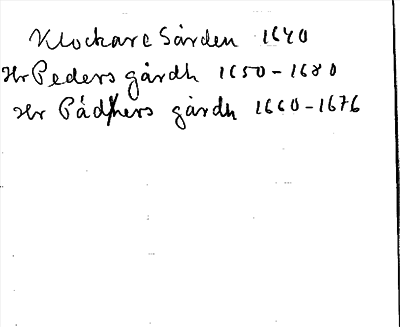 Klockare Gården 1640
Hr Peders gårdh 1650-1680
Hr Pådhers gårdh 1660-1676